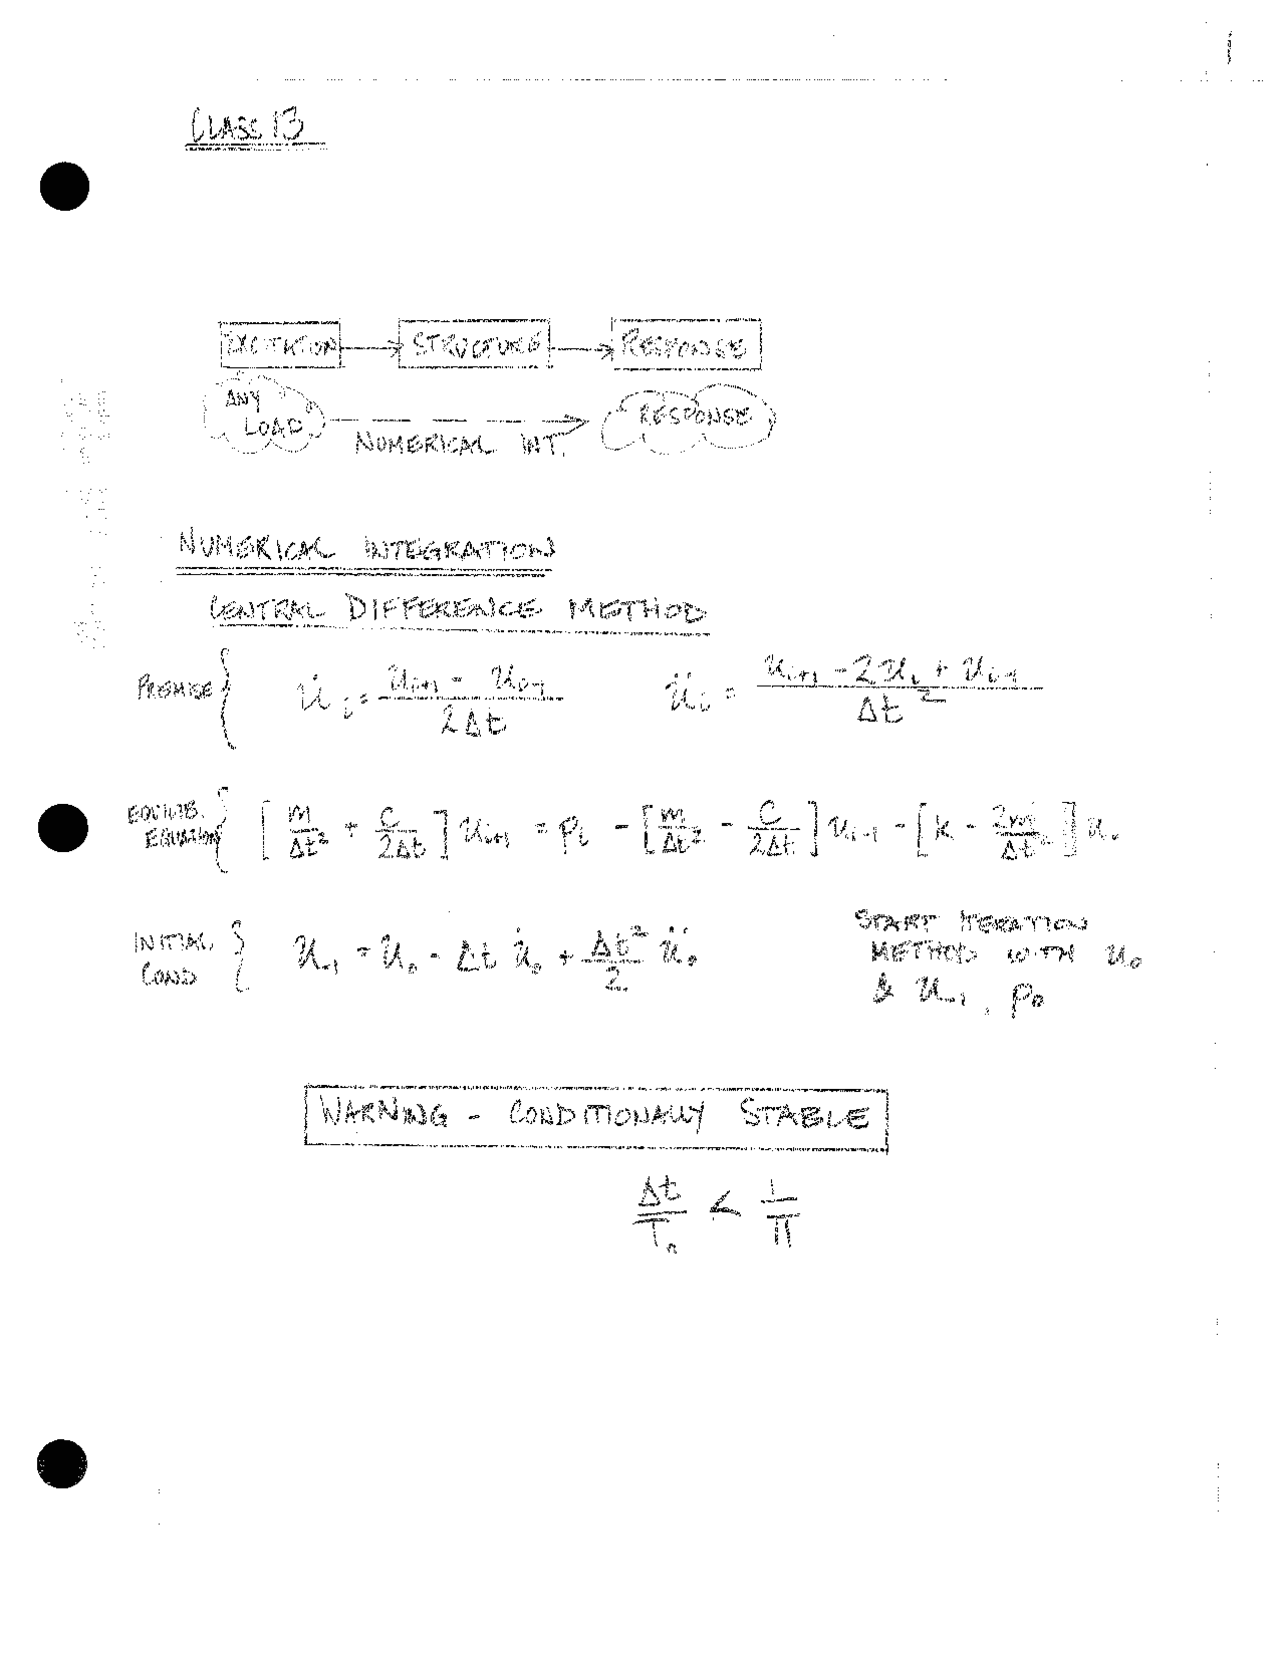 1
CLASS 13
EXCITATION → STRUCTURE → RESPONSE
ANY LOAD
NUMERICAL INT.
RESPONSE
NUMERICAL INTEGRATION
CENTRAL DIFFERENCE METHOD
PREMISE { u̇ᵢ = (uᵢ₊₁ - uᵢ₋₁) / 2Δt    üᵢ = (uᵢ₊₁ - 2uᵢ + uᵢ₋₁) / Δt²
EQUILIB. EQUATION { [m/Δt² + C/2Δt] uᵢ₊₁ = pᵢ - [m/Δt² - C/2Δt] uᵢ₋₁ - [k - 2m/Δt²] uᵢ
INITIAL COND { u₋₁ = u₀ - Δt u̇₀ + Δt²/2 ü₀
START ITERATION
METHOD WITH u₀
& u₋₁, p₀
WARNING - CONDITIONALLY STABLE
Δt/Tₙ < 1/π